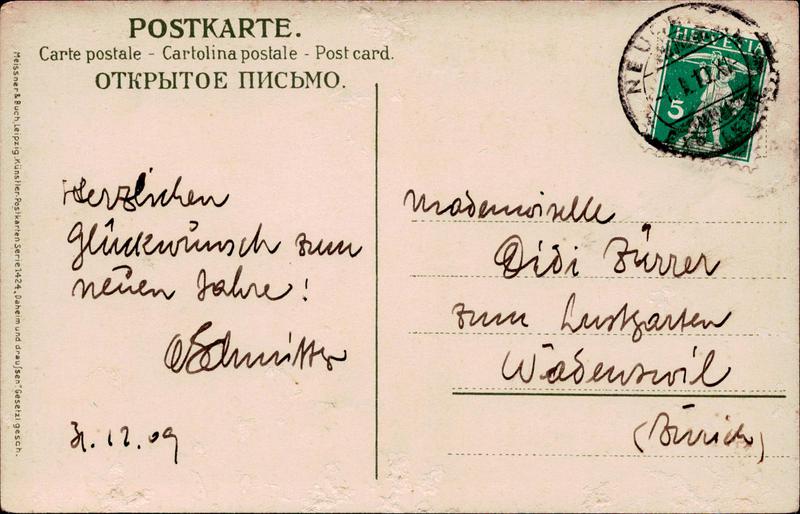 POSTKARTE.
Carte postale - Cartolina postale - Post card.
ОТКРЫТОЕ ПИСЬМО.
Meissner & Buch, Leipzig. Künstler-Postkarten Serie 1424. „Daheim und draußen" Gesetzl. gesch.
HELVETIA
5
Herzlichen
Glückwünsch zum
neuen Jahre!
31.12.09
Mademoiselle
Didi Zürrer
zum Lustgarten
Wädenswil
(Zürich)